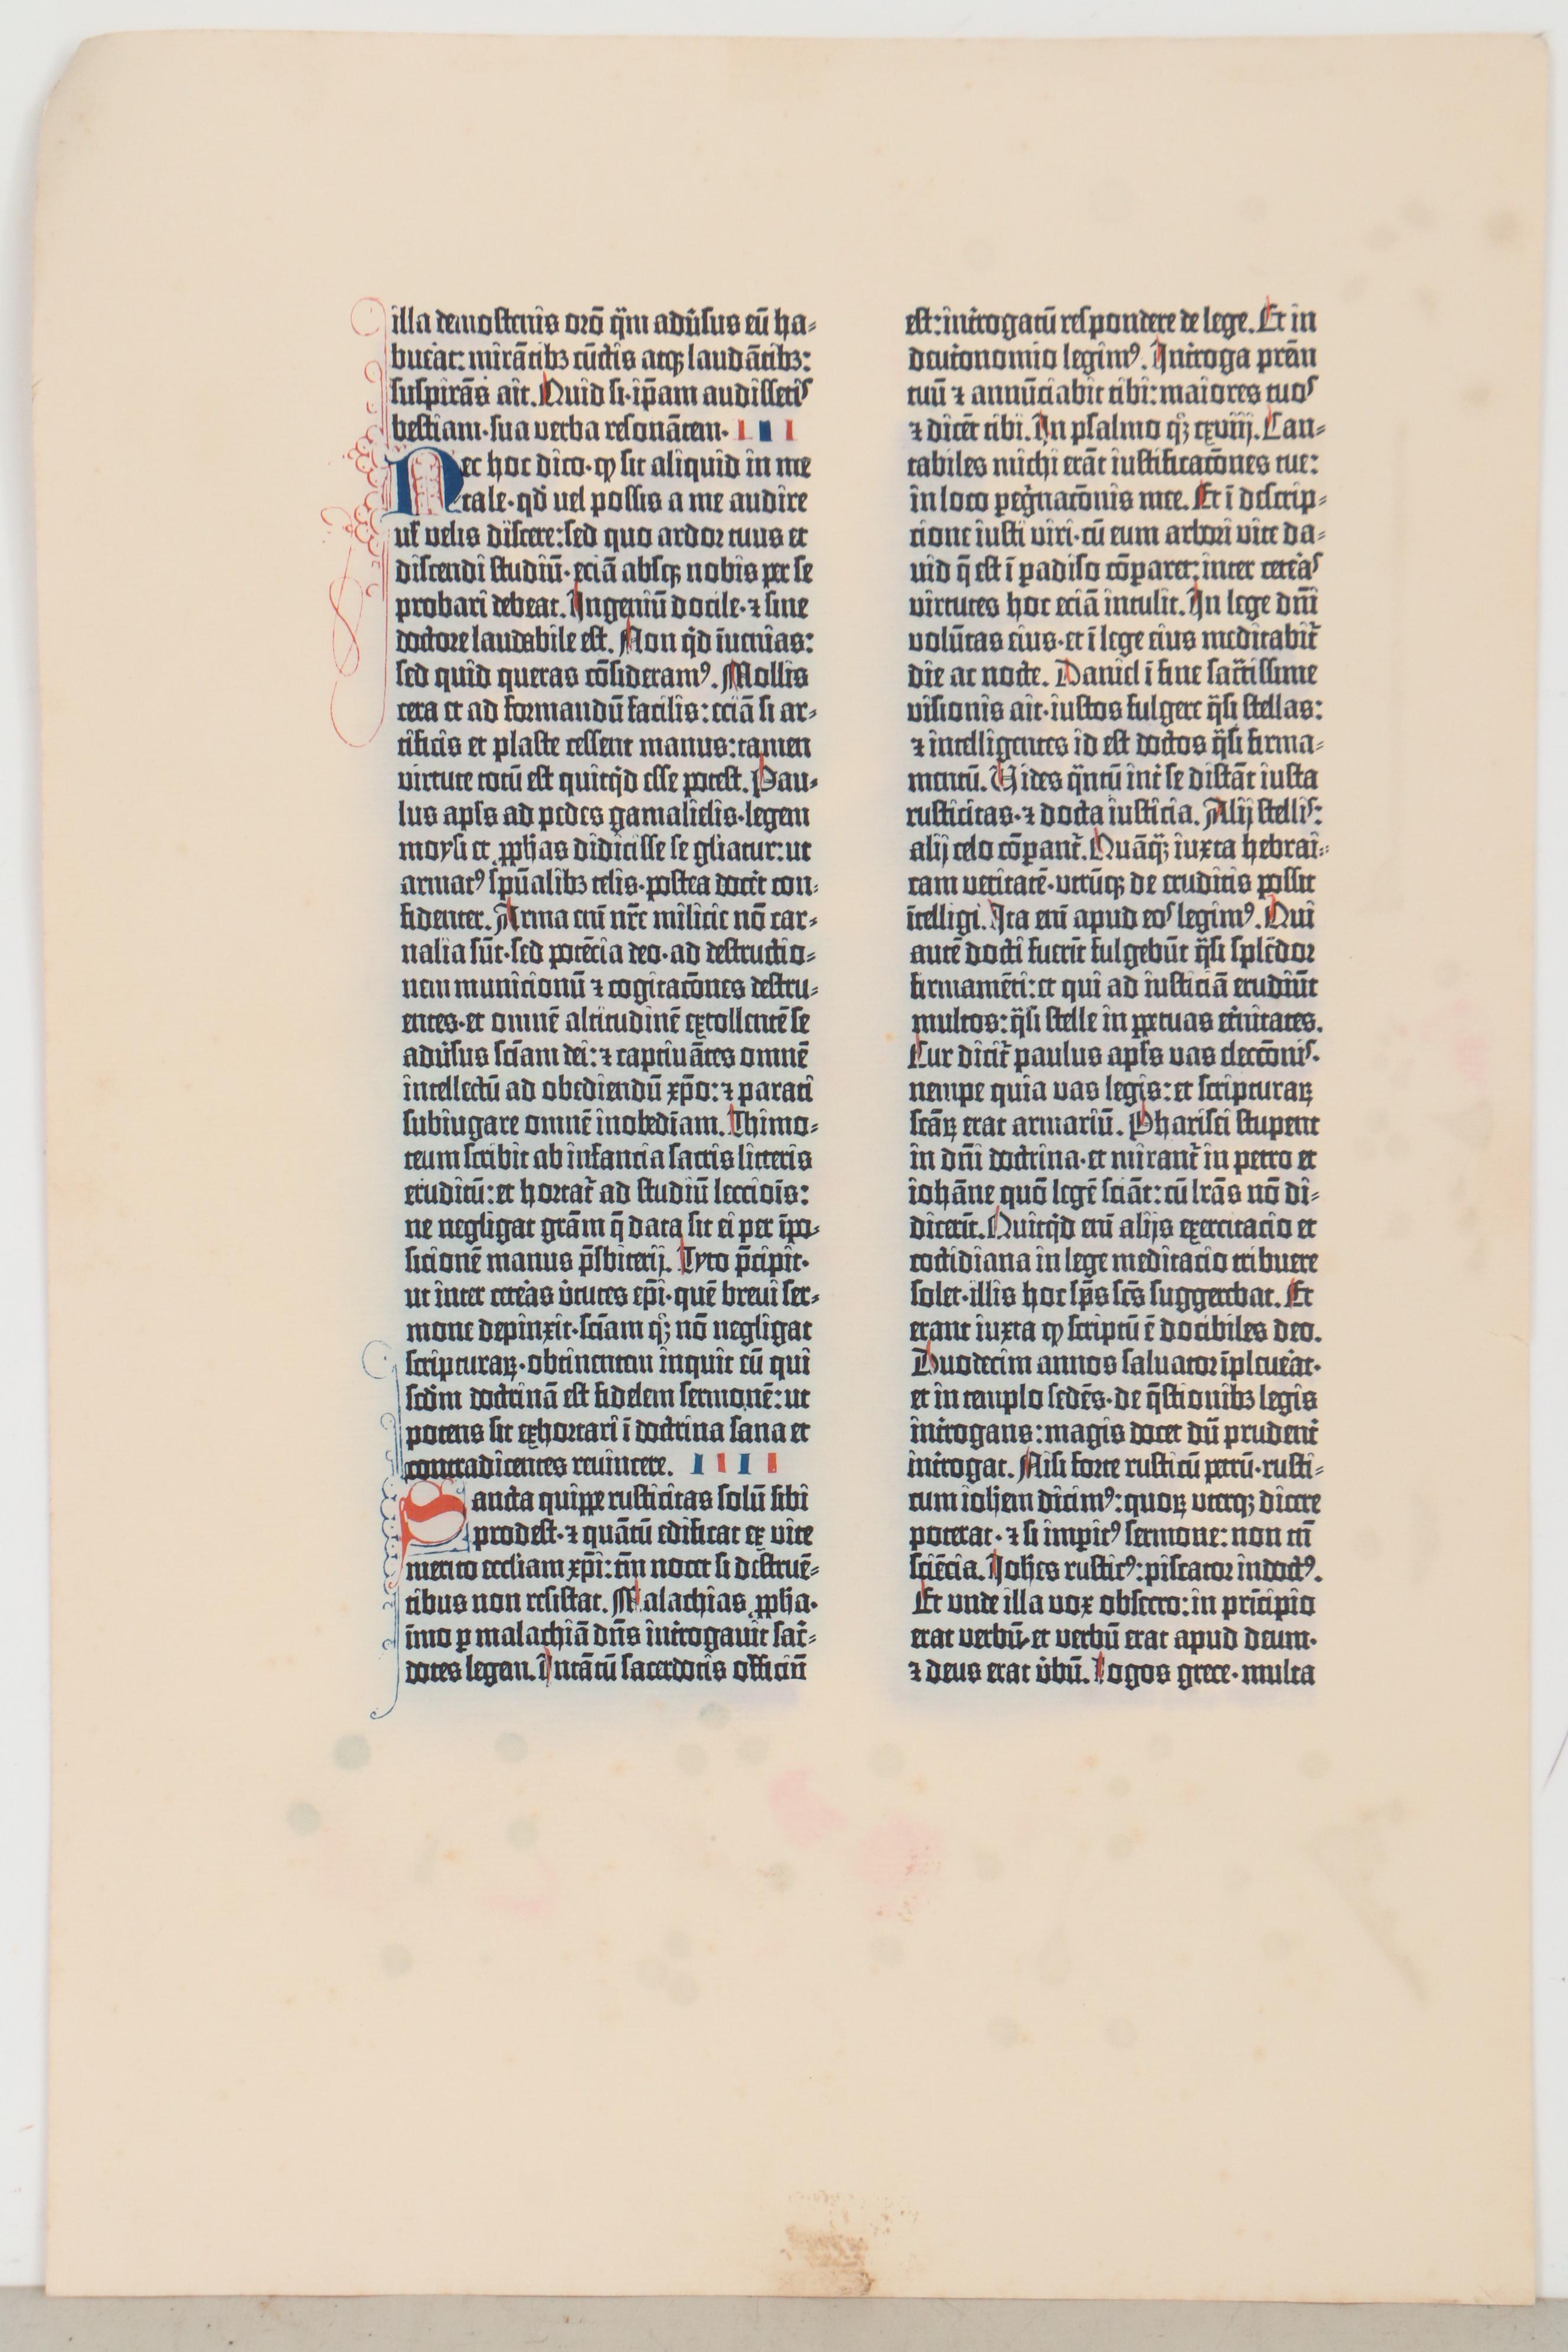 illa demostenis orō q̄m adūsus eū ha-
buēat: mirātibꝫ cūctis atqꝫ laudātibꝫ:
suspirās ait. Quid si ip̄am audissetis
bestiam·sua verba resonātem· I I I
Nec hoc dico·ꝙ sit aliquid in me
tale·qd̄ vel possis a me audire
ul̄ velis discere: sed quo ardor tuus et
discendi studiū·eciā absqꝫ nobis per se
probari debeat. Ingeniū docile·⁊ sine
doctore laudabile est. Non qd̄ īuenias:
sed quid queras cōsideramꝰ. Mollis
cera et ad formandū facilis: eciā si ar-
tificis et plaste cessent manus: tamen
virtute totū est quitqd̄ esse potest. Pau-
lus apl̄s ad pedes gamalielis·legem
moysi et ꝓphās didicisse se gl̄iatur: ut
armatꝰ spūalibꝫ telis·postea docēt con-
fidenter. Arma eni nr̄e milicie nō car-
nalia sūt·sed potēcia deo·ad destructio-
nem municionū ⁊ cogitacōnes destru-
entes·et omnē altitudinē extollentē se
adūsus sciam dei: ⁊ captiuātes omnē
intellectū ad obediendū xp̄o: ⁊ parati
subiugare omnē inobediam. Thimo-
teum scribit ab infantia sacris litteris
eruditū: et hortat̄ ad studiū lecciois:
ne negligat gr̄am q̄ data sit ei per īpo-
sicionē manus p̄sbiterij. Tyto p̄cipit·
ut inter cetēas v̄tutes ep̄i·quē brevi ser-
mone depinxit·sciam qꝫ nō negligat
scripturaꝝ·obtinentem inquit eū qui
scdm̄ doctrinā est fidelem sermonē: ut
potens sit exhortari ī doctrina sana et
contradicentes revincere. I I I I
Sancta quippe rusticitas solū sibi
prodest·⁊ quātū edificat ex vite
merito eccliam xp̄i: tm̄ nocet si destruē-
tibus non resistat. Malachias ꝓpha·
īmo ꝑ malachiā dn̄s int̄rogauit sac̄-
dotes legem. Intātū sacerdotis officiū
est: int̄rogatū respondere de lege. Et in
deut̄onomio legimꝰ. Int̄roga pr̄em
tuū ⁊ annūciabit tibi: maiores tuos
⁊ dicēt tibi. In psalmo qꝫ cxviij. Can-
tabiles michi erāt iustificatōnes tue:
in loco peg̊natōnis mee. Et ī descrip-
cione iusti viri·cū eum arbori vite da-
uid q̄ est ī padiso cōparet: inter cetēas
virtutes hoc eciā intulit. In lege dn̄i
volūtas eius·et ī lege eius meditabit̄
die ac nocte. Daniel ī fine sac̄tissime
visionis ait·iustos fulgere q̄si stellas:
⁊ intelligentes id est doctos q̄si firma-
mentū. Vides q̄ntū int̄ se distāt iusta
rusticitas·⁊ docta iusticia. Alij stellis:
alij celo cōparant̄. Quāqꝫ iuxta hebrai-
cam veritatē·vtrūqꝫ de eruditis possit
ītelligi. Ita eni apud eos legimꝰ. Qui
autē docti fuerīt fulgebūt q̄si splēdor
firmamēti: et qui ad iusticiā erudiūt
multos: q̄si stelle in ꝑpetuas et̄nitates.
Cur dicit̄ paulus apl̄s vas eleccōnis·
nempe quia vas legis: et scripturaꝝ
scāꝝ erat armariū. Pharisei stupent
in dn̄i doctrina·et mirant̄ in petro et
iohāne quō legē sciāt: cū lr̄as nō di-
dicerīt. Quitqd̄ eni alijs exercitacio et
cotidiana in lege meditacio tribuere
solet·illis hoc sp̄s sc̄s suggerebat. Et
erant iuxta ꝙ scriptū ē docibiles deo.
Duodecim annos saluator īpleuēat·
et in templo sedēs·de q̄stionibꝫ legis
int̄rogans: magis docet dū prudent̄
int̄rogat. Nisi forte rusticū petrū·rusti-
cum ioh̄em dicimꝰ: quoꝝ vterqꝫ dicere
poterat·⁊ si imꝑitꝰ sermone: non tn̄
sciēcia. Ioh̄es rusticꝰ: piscator indoctꝰ.
Et vnde illa vox obsecro: in principio
erat verbū·et verbū erat apud deum·
⁊ deus erat v̄bū. Logos grece·multa